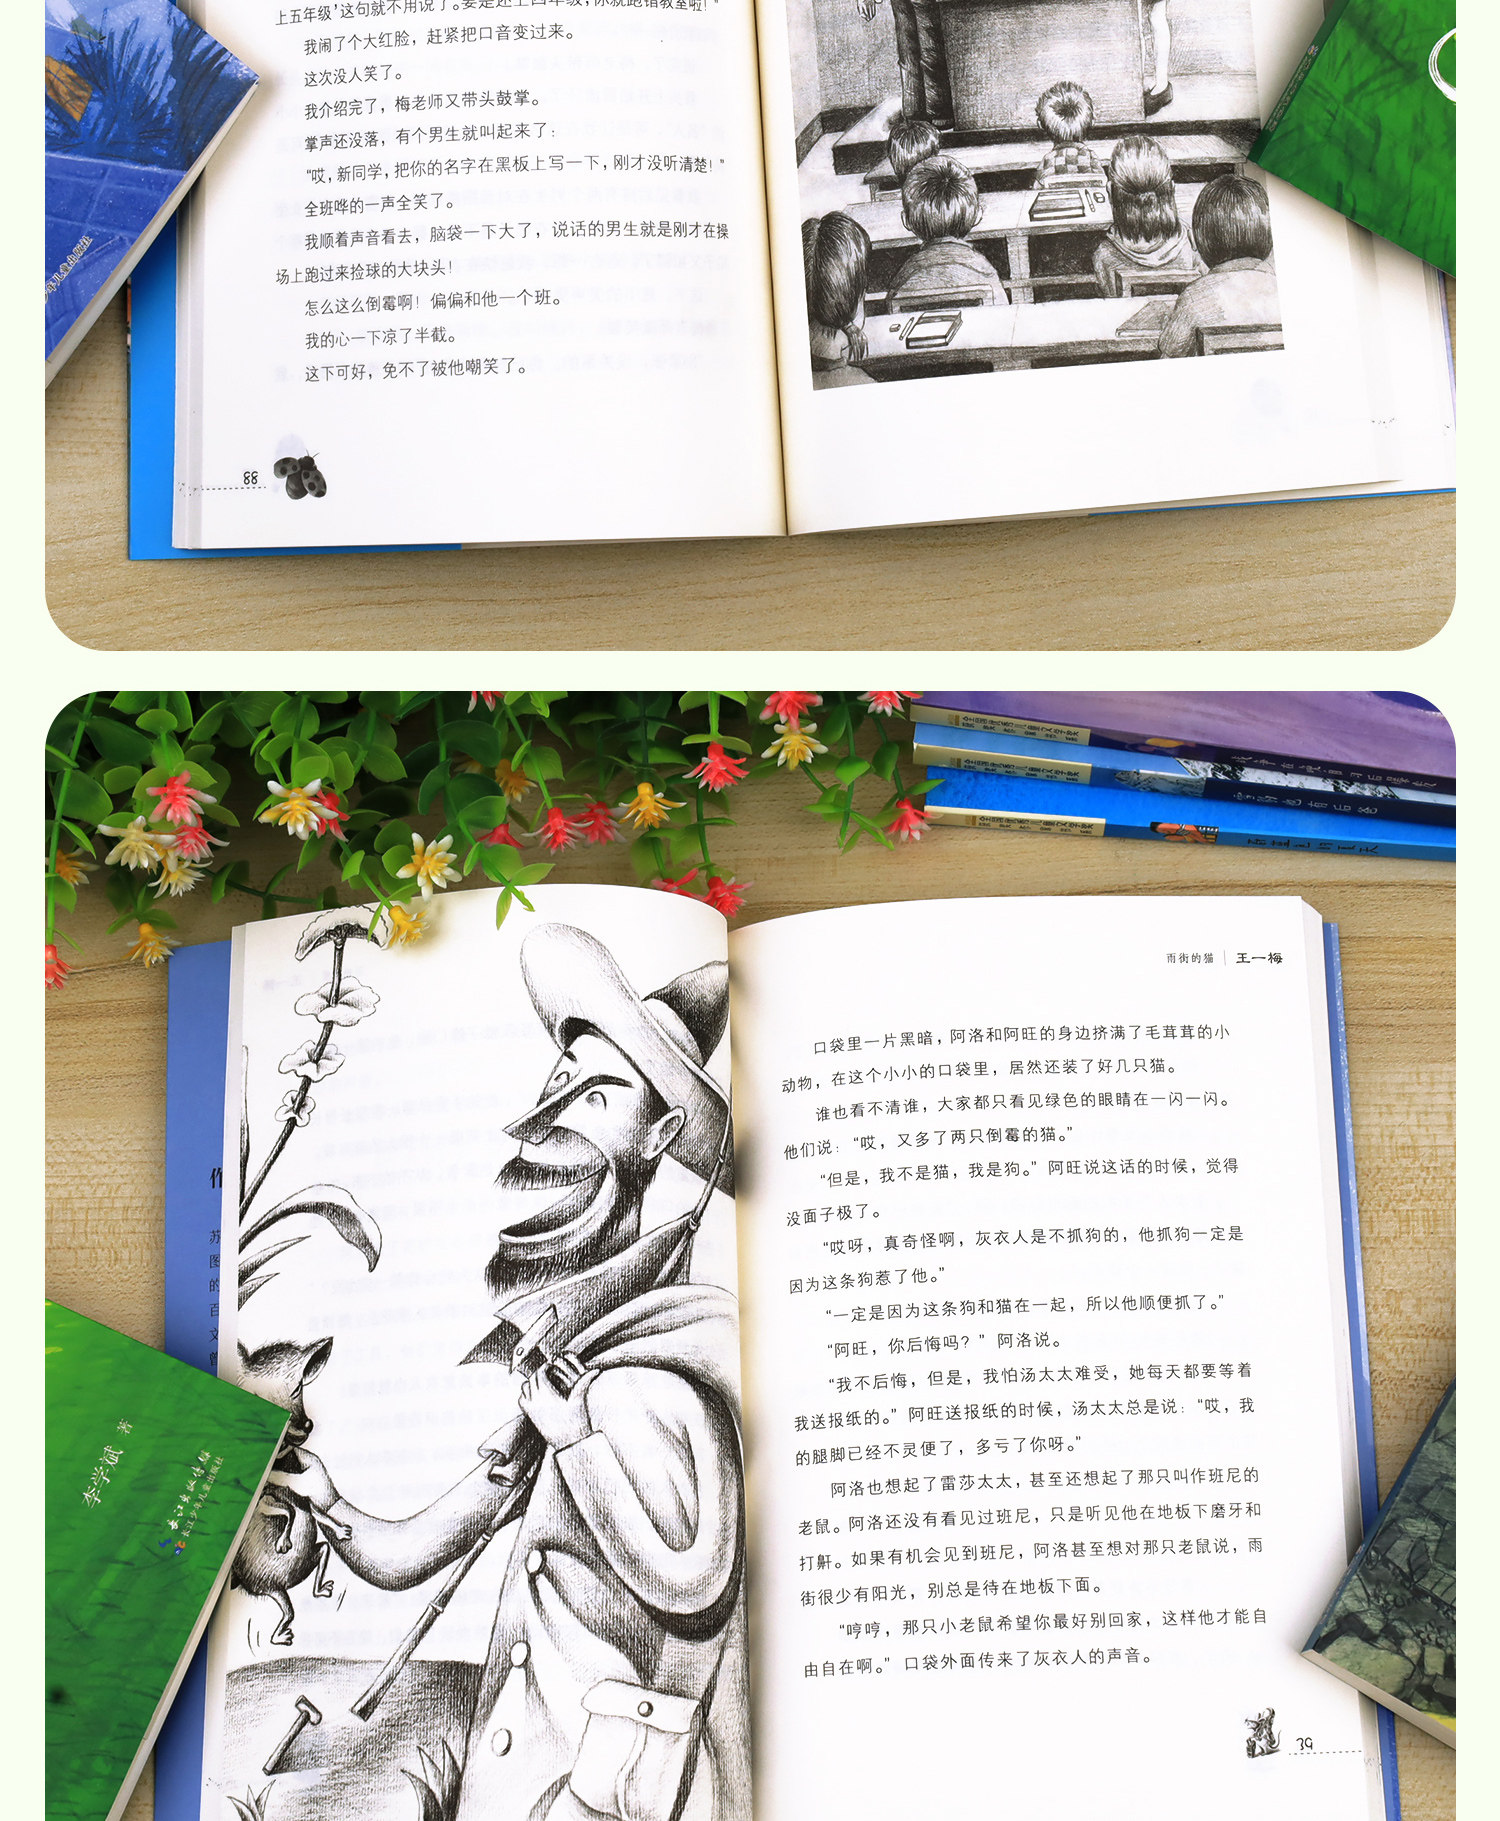 上五年级’这句就不用说了。要是还上四年级，你就跑错教室啦！”
我闹了个大红脸，赶紧把口音变过来。
这次没人笑了。
我介绍完了，梅老师又带头鼓掌。
掌声还没落，有个男生就叫起来了：
“哎，新同学，把你的名字在黑板上写一下，刚才没听清楚！”
全班哗的一声全笑了。
我顺着声音看去，脑袋一下大了，说话的男生就是刚才在操
场上跑过来捡球的大块头！
怎么这么倒霉啊！偏偏和他一个班。
我的心一下凉了半截。
这下可好，免不了被他嘲笑了。
88
雨街的猫 | 王一梅
口袋里一片黑暗，阿洛和阿旺的身边挤满了毛茸茸的小
动物，在这个小小的口袋里，居然还装了好几只猫。
谁也看不清谁，大家都只看见绿色的眼睛在一闪一闪。
他们说：“哎，又多了两只倒霉的猫。”
“但是，我不是猫，我是狗。”阿旺说这话的时候，觉得
没面子极了。
“哎呀，真奇怪啊，灰衣人是不抓狗的，他抓狗一定是
因为这条狗惹了他。”
“一定是因为这条狗和猫在一起，所以他顺便抓了。”
“阿旺，你后悔吗？”阿洛说。
“我不后悔，但是，我怕汤太太难受，她每天都要等着
我送报纸的。”阿旺送报纸的时候，汤太太总是说：“哎，我
的腿脚已经不灵便了，多亏了你呀。”
阿洛也想起了雷莎太太，甚至还想起了那只叫作班尼的
老鼠。阿洛还没有看见过班尼，只是听见他在地板下磨牙和
打鼾。如果有机会见到班尼，阿洛甚至想对那只老鼠说，雨
街很少有阳光，别总是待在地板下面。
“哼哼，那只小老鼠希望你最好别回家，这样他才能自
由自在啊。”口袋外面传来了灰衣人的声音。
39
李学斌 著
长江出版传媒
长江少年儿童出版社